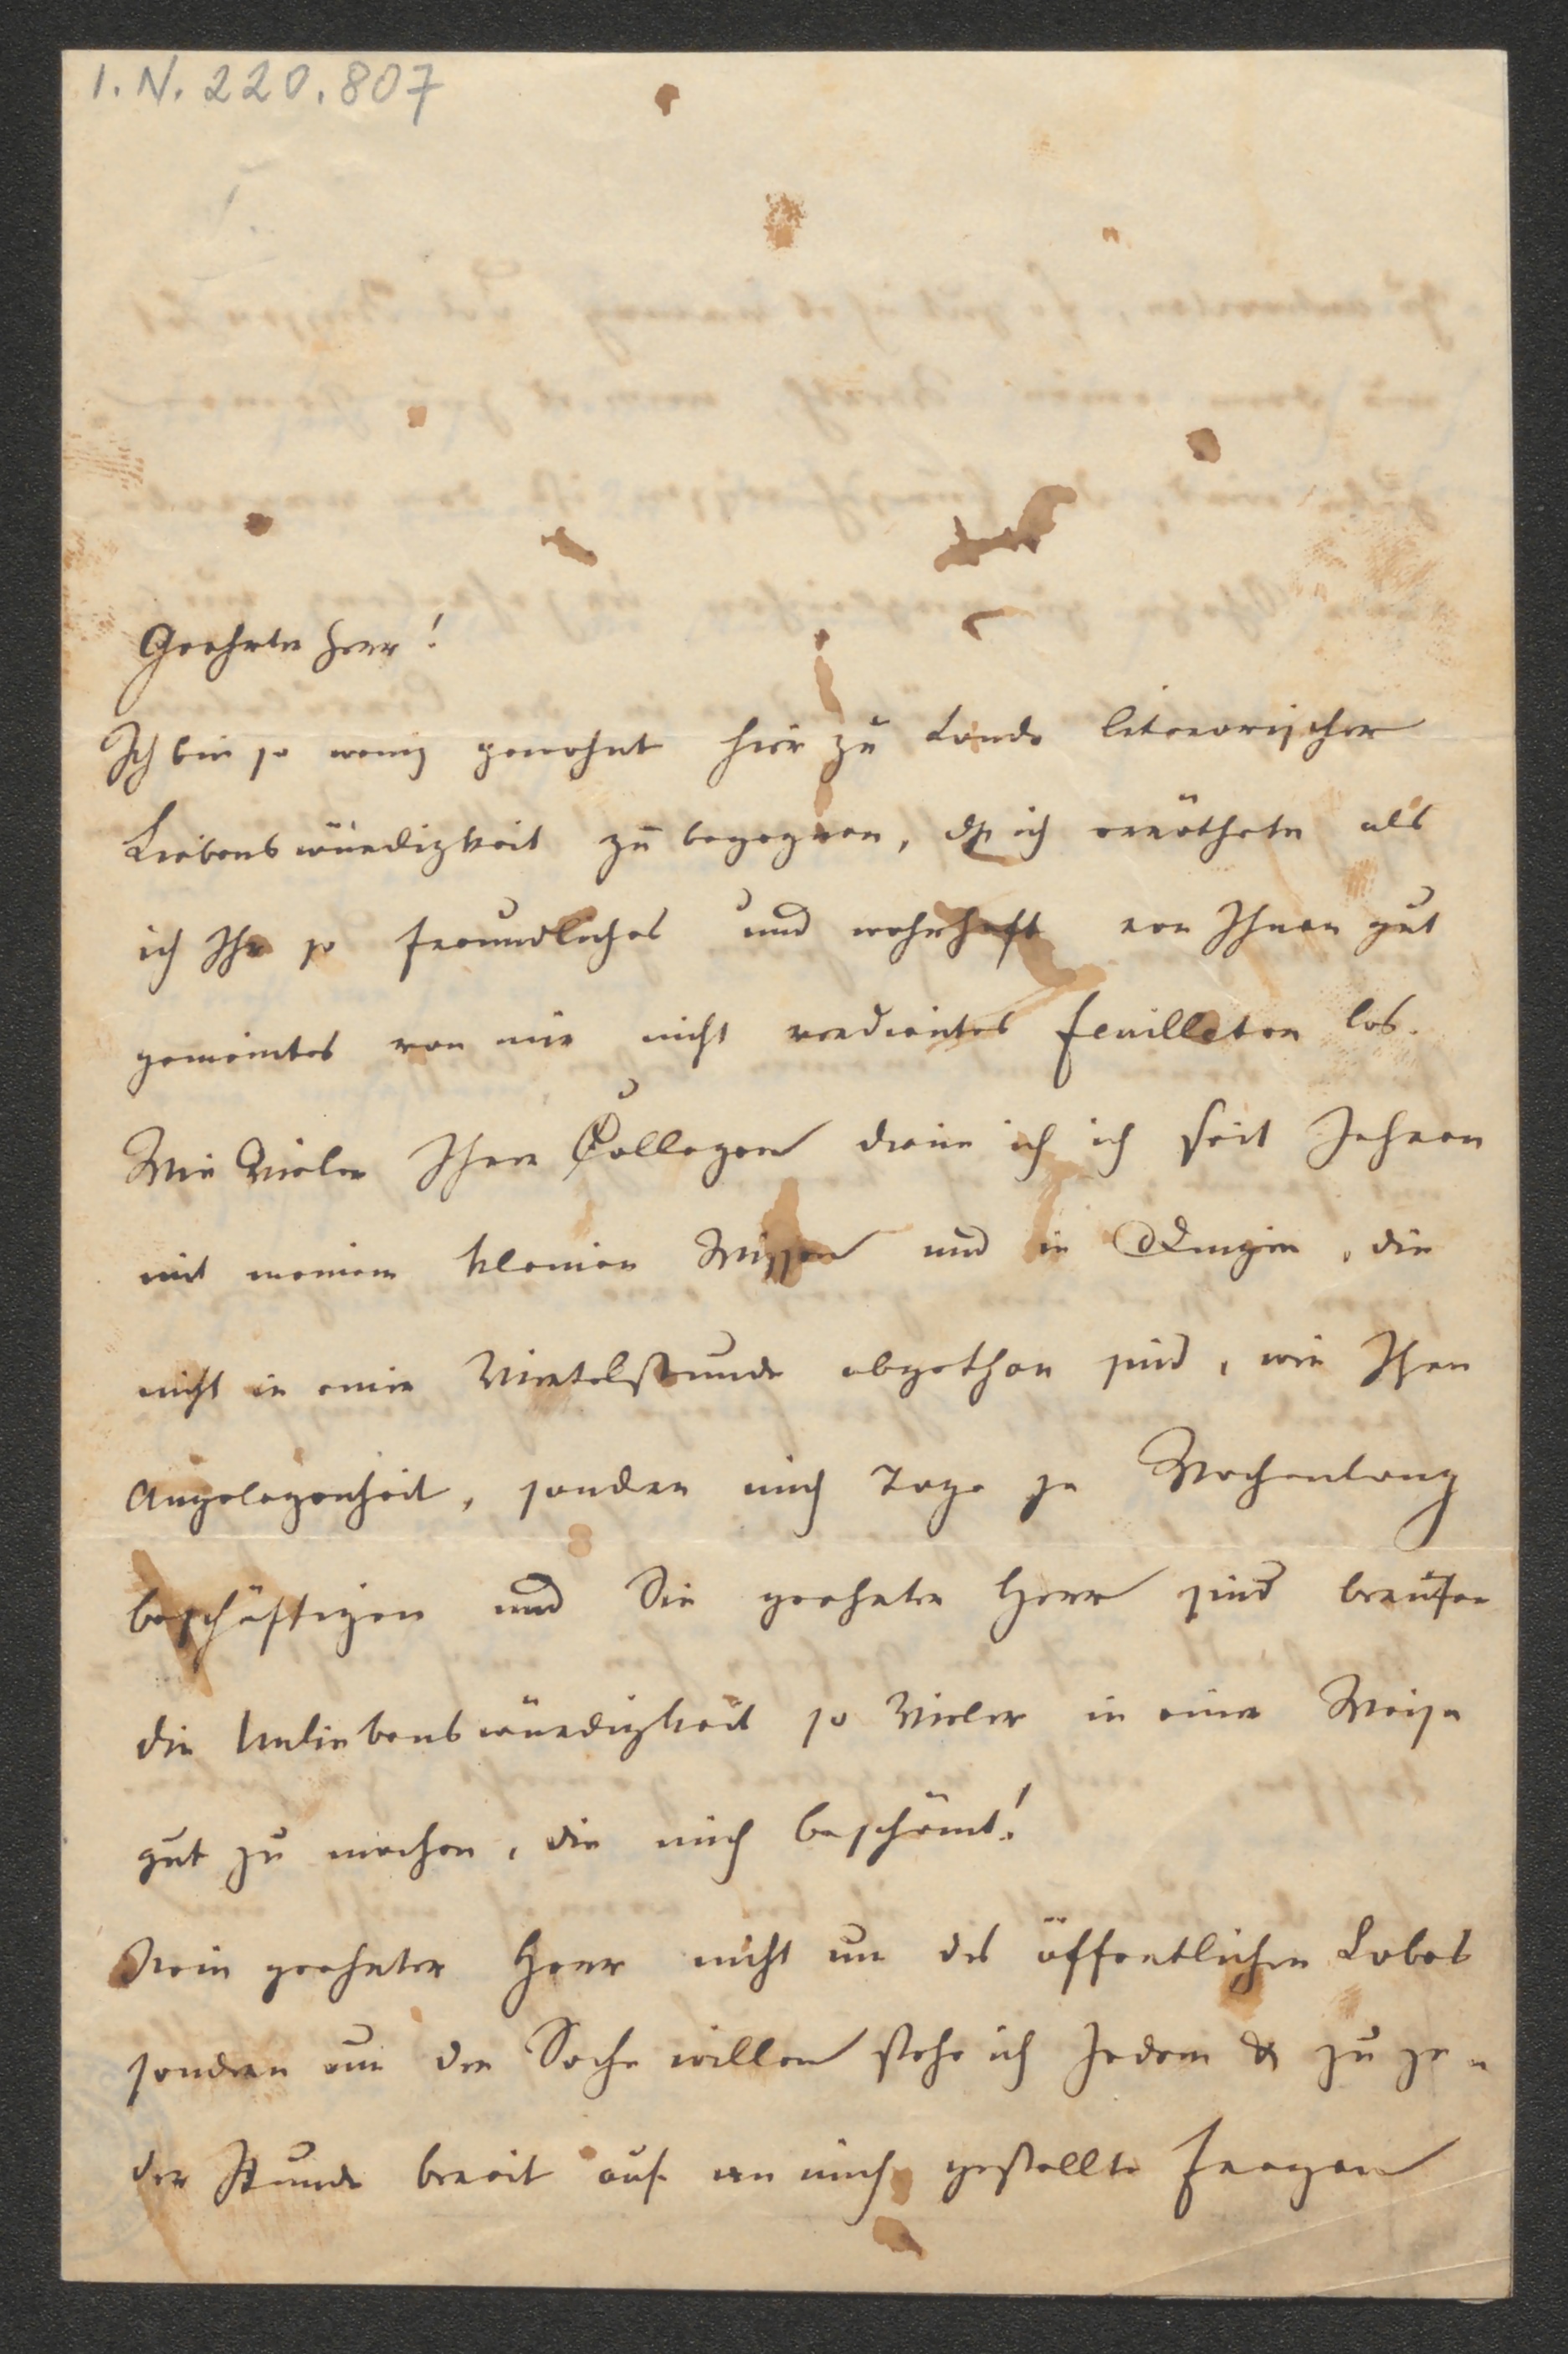 I. N. 220.807
Geehrter Herr!
Ich bin so wenig gewohnt hier zu Lande literarischer
Liebenswürdigkeit zu begegnen, dß ich erröthete als
ich Ihr so freundliches und wahrhaft von Ihnen gut
gemeintes von mir nicht verdientes Feuilleton las.
Wie Vielen Ihrer Collegen diene ich ich seit Jahren
mit meinem kleinen Wissen und in Dingen, die
nicht in einer Viertelstunde abgethan sind, wie Ihre
Angelegenheit, sondern mich Tage ja Wochenlang
beschäftigen und Sie geehrter Herr sind berufen
die Unliebenswürdigkeit so Vieler in einer Weise
gut zu machen, die mich beschämt!
Nein geehrter Herr nicht um des öffentlichen Lobes
sondern um der Sache willen stehe ich Jedem & zu je-
der Stunde bereit auf an mich gestellte Fragen